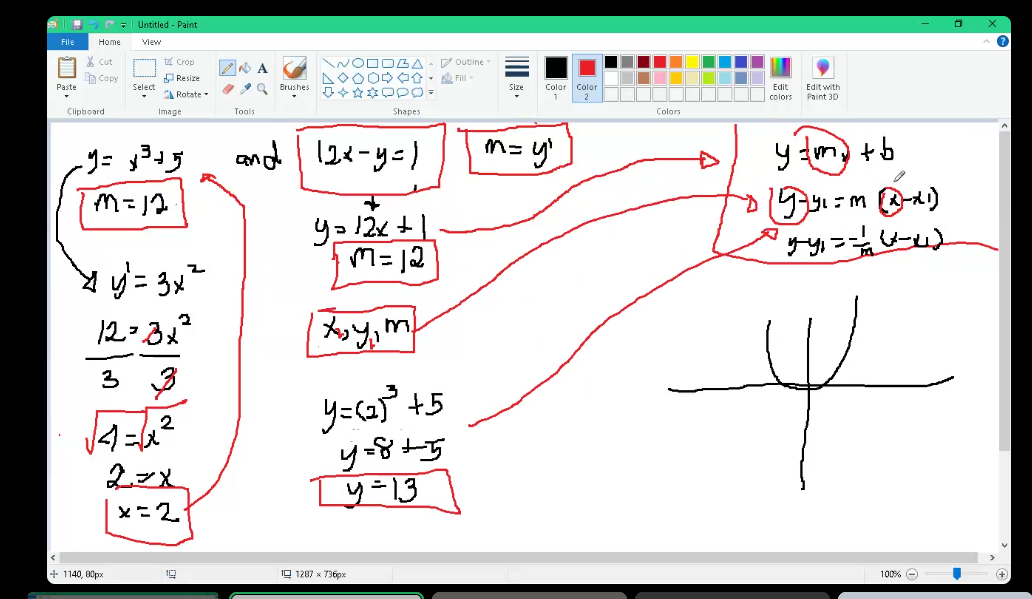 Untitled - Paint
File
Home
View
Paste
Cut
Copy
Clipboard
Select
Crop
Resize
Rotate
Image
A
Tools
Brushes
Outline
Fill
Shapes
Size
Color 1
Color 2
Edit colors
Edit with Paint 3D
Colors
y = x³+5
and
12x-y=1
m=y'
y=mx+b
m=12
y-y₁=m(x-x₁)
y=12x+1
y-y₁=-1/m(x-x₁)
m=12
y'=3x²
12=3x²
3 3
x₁, y₁, m
√4=√x²
y=(2)³+5
2=x
y=8+5
x=2
y=13
1140, 80px
1287 × 736px
100%